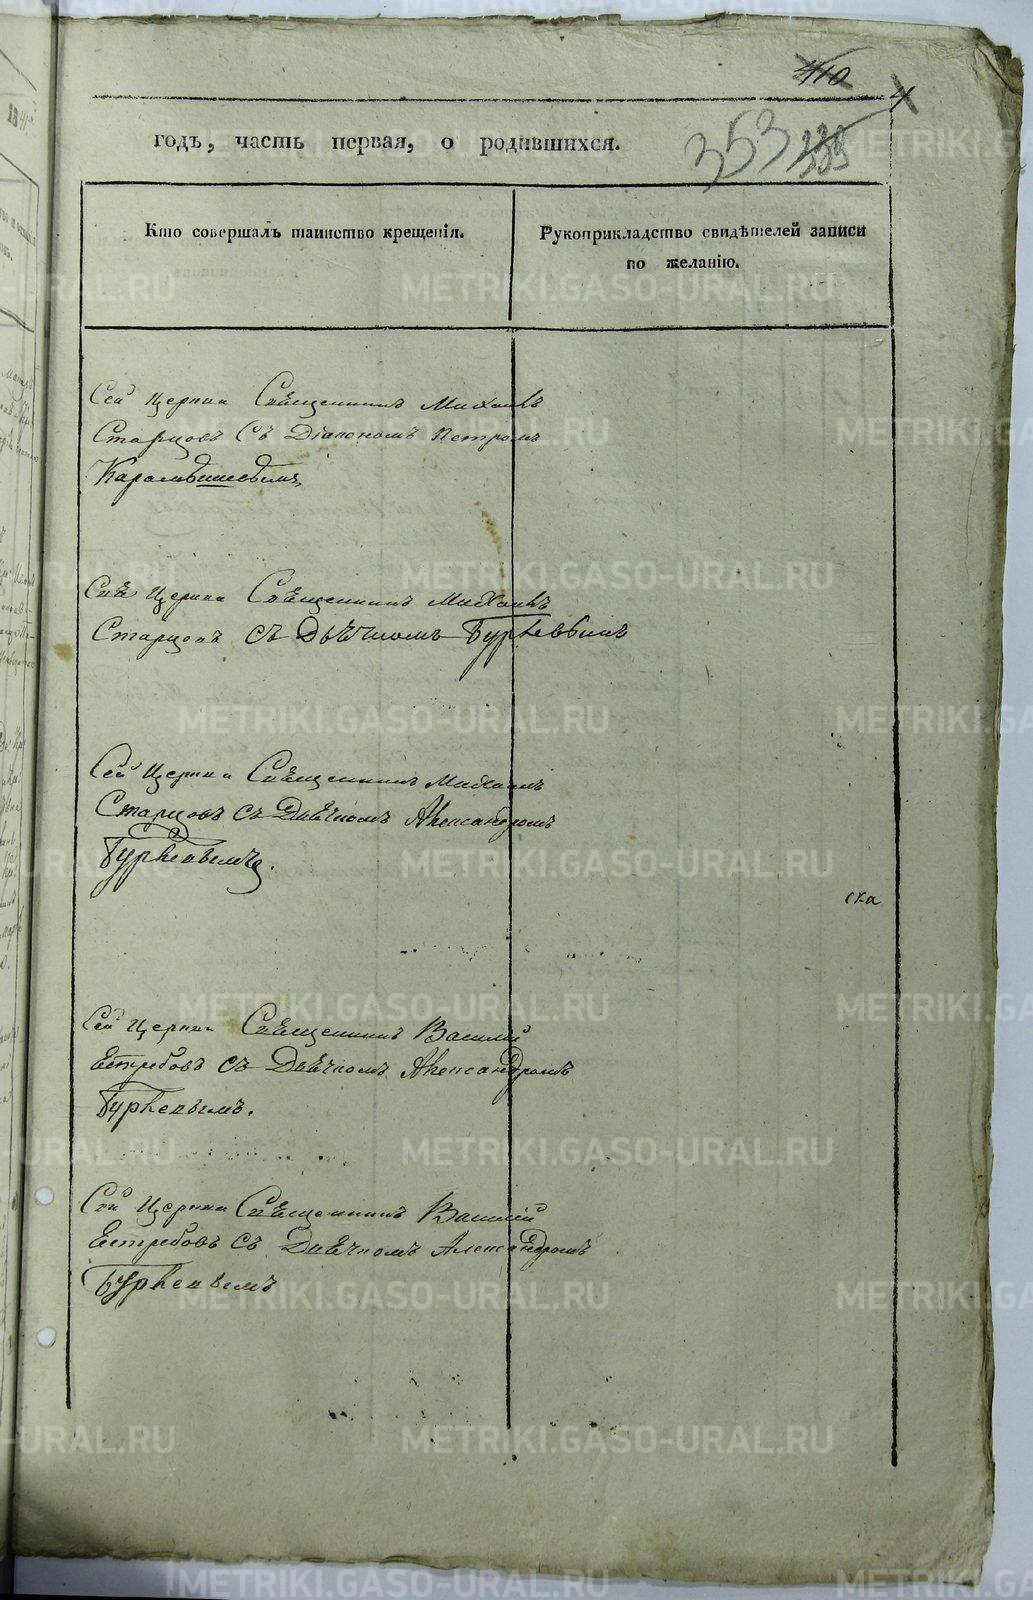 410
4
353
годъ, часть первая, о родившихся.
Кто совершалъ таинство крещенія.
Рукоприкладство свидѣтелей записи
по желанію.
Сей Церкви Священникъ Михаилъ
Старцовъ съ Діакономъ Петромъ
Карамышевымъ
Сей Церкви Священникъ Михаилъ
Старцовъ съ Дьячкомъ
Сей Церкви Священникъ Михаилъ
Старцовъ съ Дьячкомъ Александромъ
ска
Сей Церкви Священникъ Василій
Ястребовъ съ Дьячкомъ Александромъ
Сей Церкви Священникъ Василій
Ястребовъ съ Дьячкомъ Александромъ
METRIKI.GASO-URAL.RU